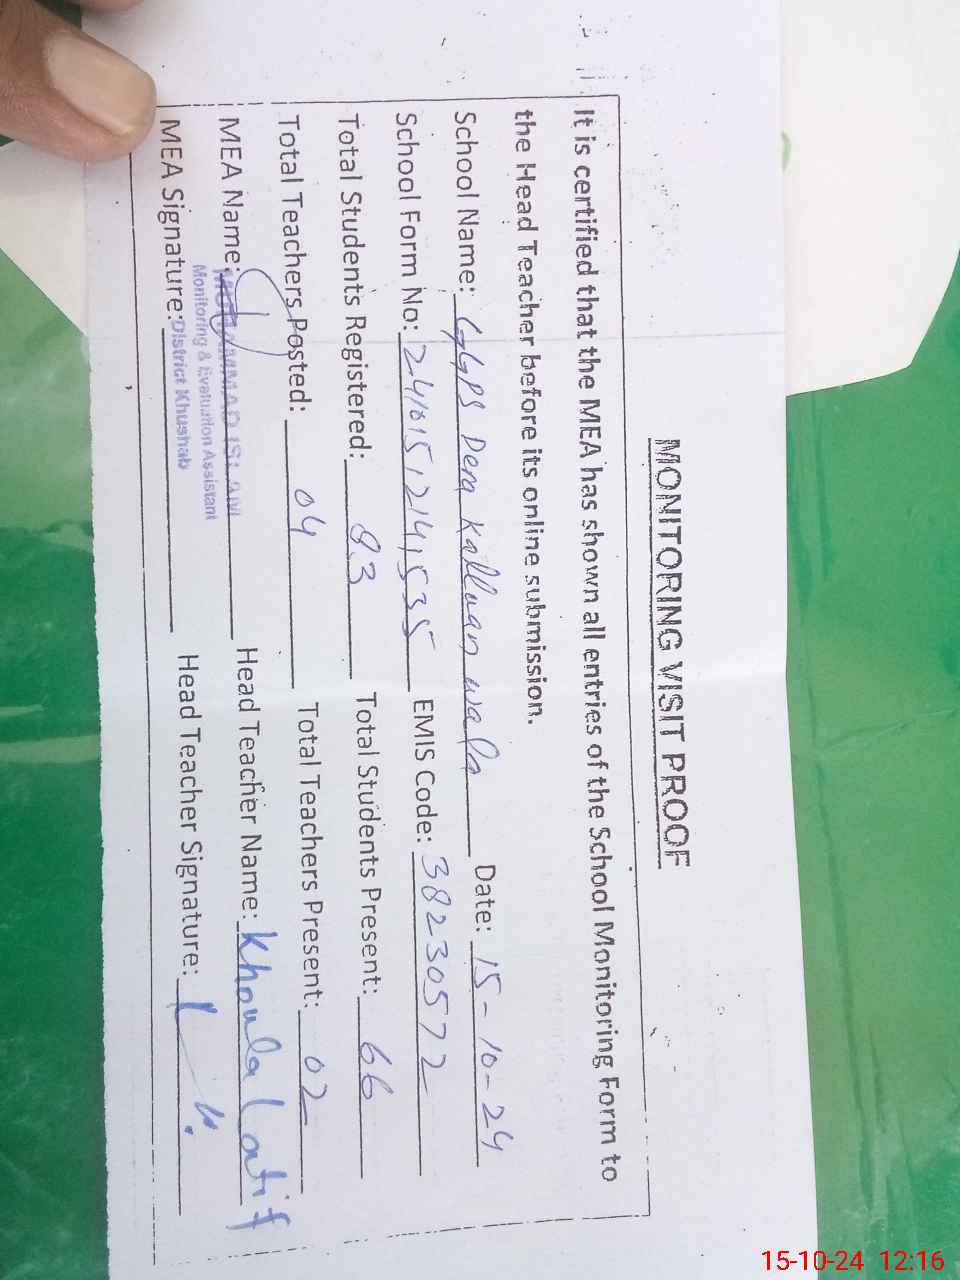 MONITORING VISIT PROOF
It is certified that the MEA has shown all entries of the School Monitoring Form to
the Head Teacher before its online submission.
School Name: GGPS Dera Kalluan wala Date: 15-10-24
School Form No: 241015,214,535 EMIS Code: 38230572
Total Students Registered: 83 Total Students Present: 66
Total Teachers Posted: 04 Total Teachers Present: 02
MEA Name: MUHAMMAD ISLAM Head Teacher Name: Khoula Latif
Monitoring & Evaluation Assistant
MEA Signature: District Khushab Head Teacher Signature:
15-10-24 12:16